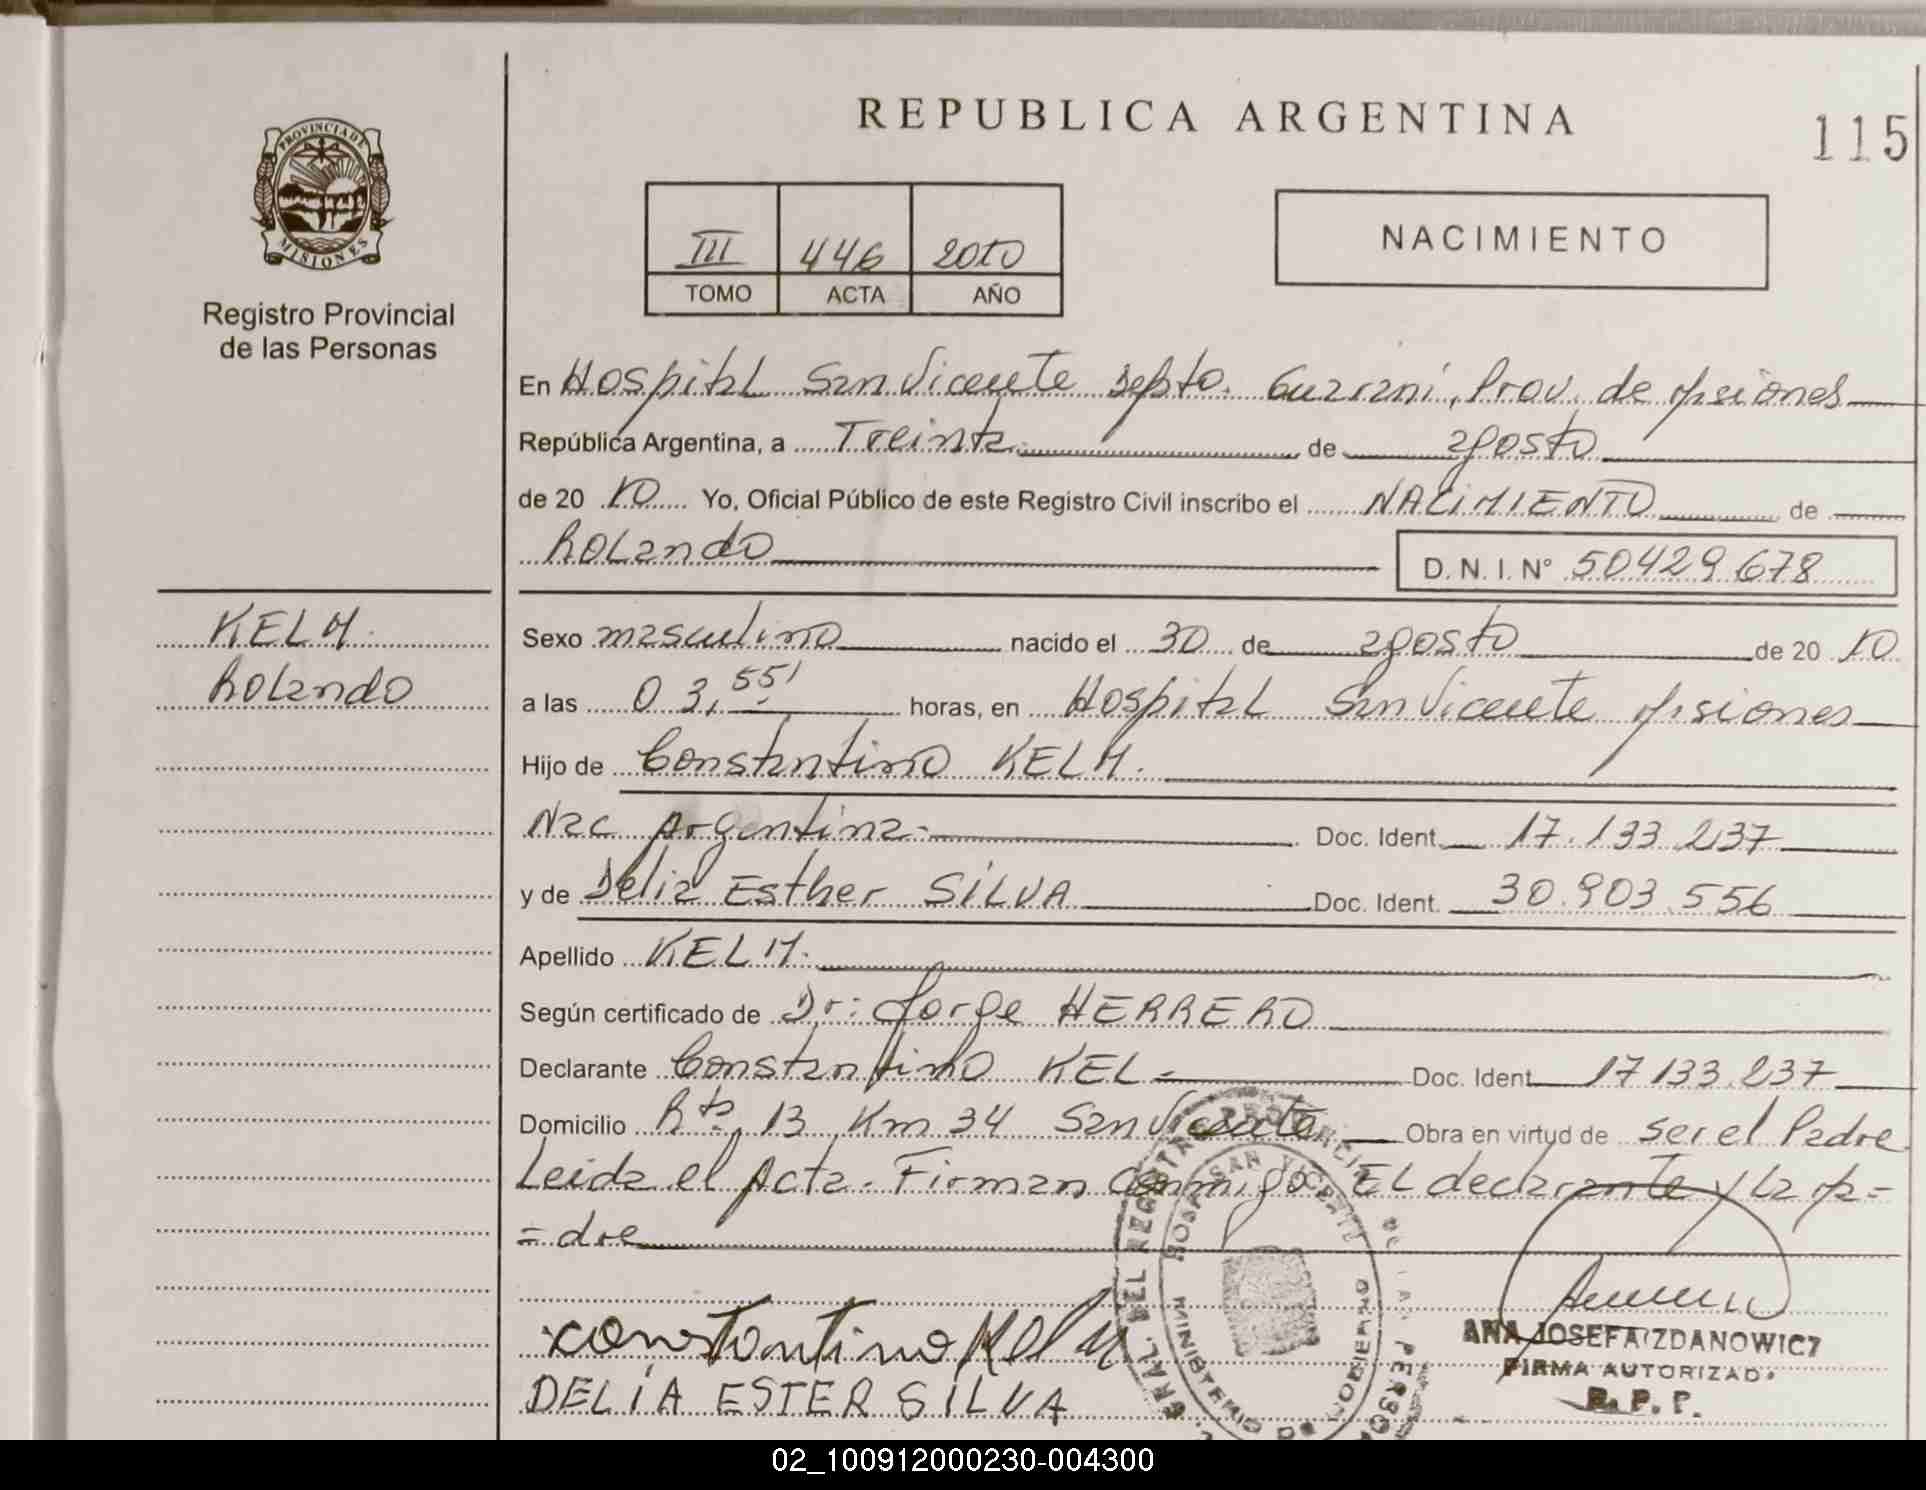 REPUBLICA ARGENTINA
115
PROVINCIA DE
MISIONES
Registro Provincial
de las Personas
III 446 2010
TOMO ACTA AÑO
NACIMIENTO
En Hospital San Vicente Depto. Guarani, Prov. de Misiones
República Argentina, a Treinta de agosto
de 20 10 Yo, Oficial Público de este Registro Civil inscribo el NACIMIENTO de
Rolando
D. N. I. N° 50429678
KELM.
Rolando
Sexo masculino nacido el 30 de agosto de 20 10
a las 03,55' horas, en Hospital San Vicente Misiones
Hijo de Constantino KELM.
Nac Argentina- Doc. Ident. 17.133.237
y de Delia Esther SILVA Doc. Ident. 30.903.556
Apellido KELM.
Según certificado de Dr: Jorge HERRERO
Declarante Constantino KEL= Doc. Ident 17133.237
Domicilio Rta. 13 Km 34 San Vicente Obra en virtud de ser el Padre
Leida el Acta. Firman conmigo EL declarante y la Ma=
=dre
constantino Kelm
DELIA ESTER SILVA
GRAL. DEL REGISTRO
HOSP. SAN VICENTE
MINISTERIO DE GOBIERNO
DE LAS PERSO
ANA JOSEFA ZDANOWICZ
FIRMA AUTORIZADA
R. P. P.
02_100912000230-004300